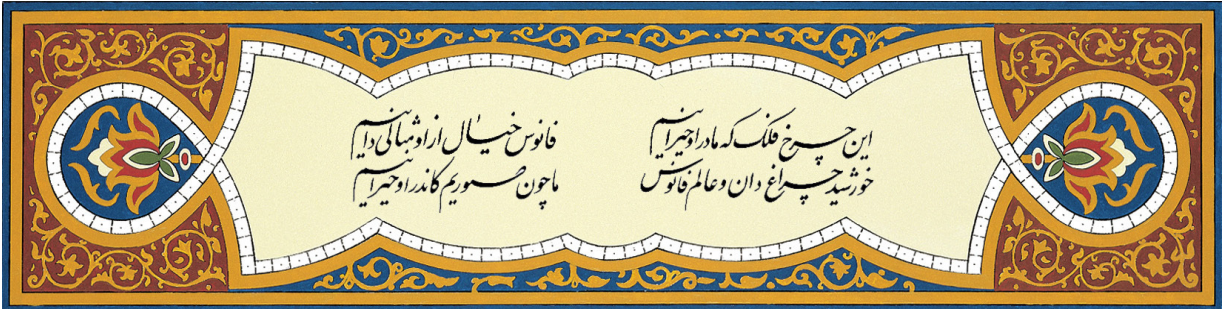 این چرخ فلک که ما در او حیرانیم
فانوس خیال از او مثالی دانیم
خورشید چراغ دان و عالم فانوس
ما چون صوریم کاندر او حیرانیم